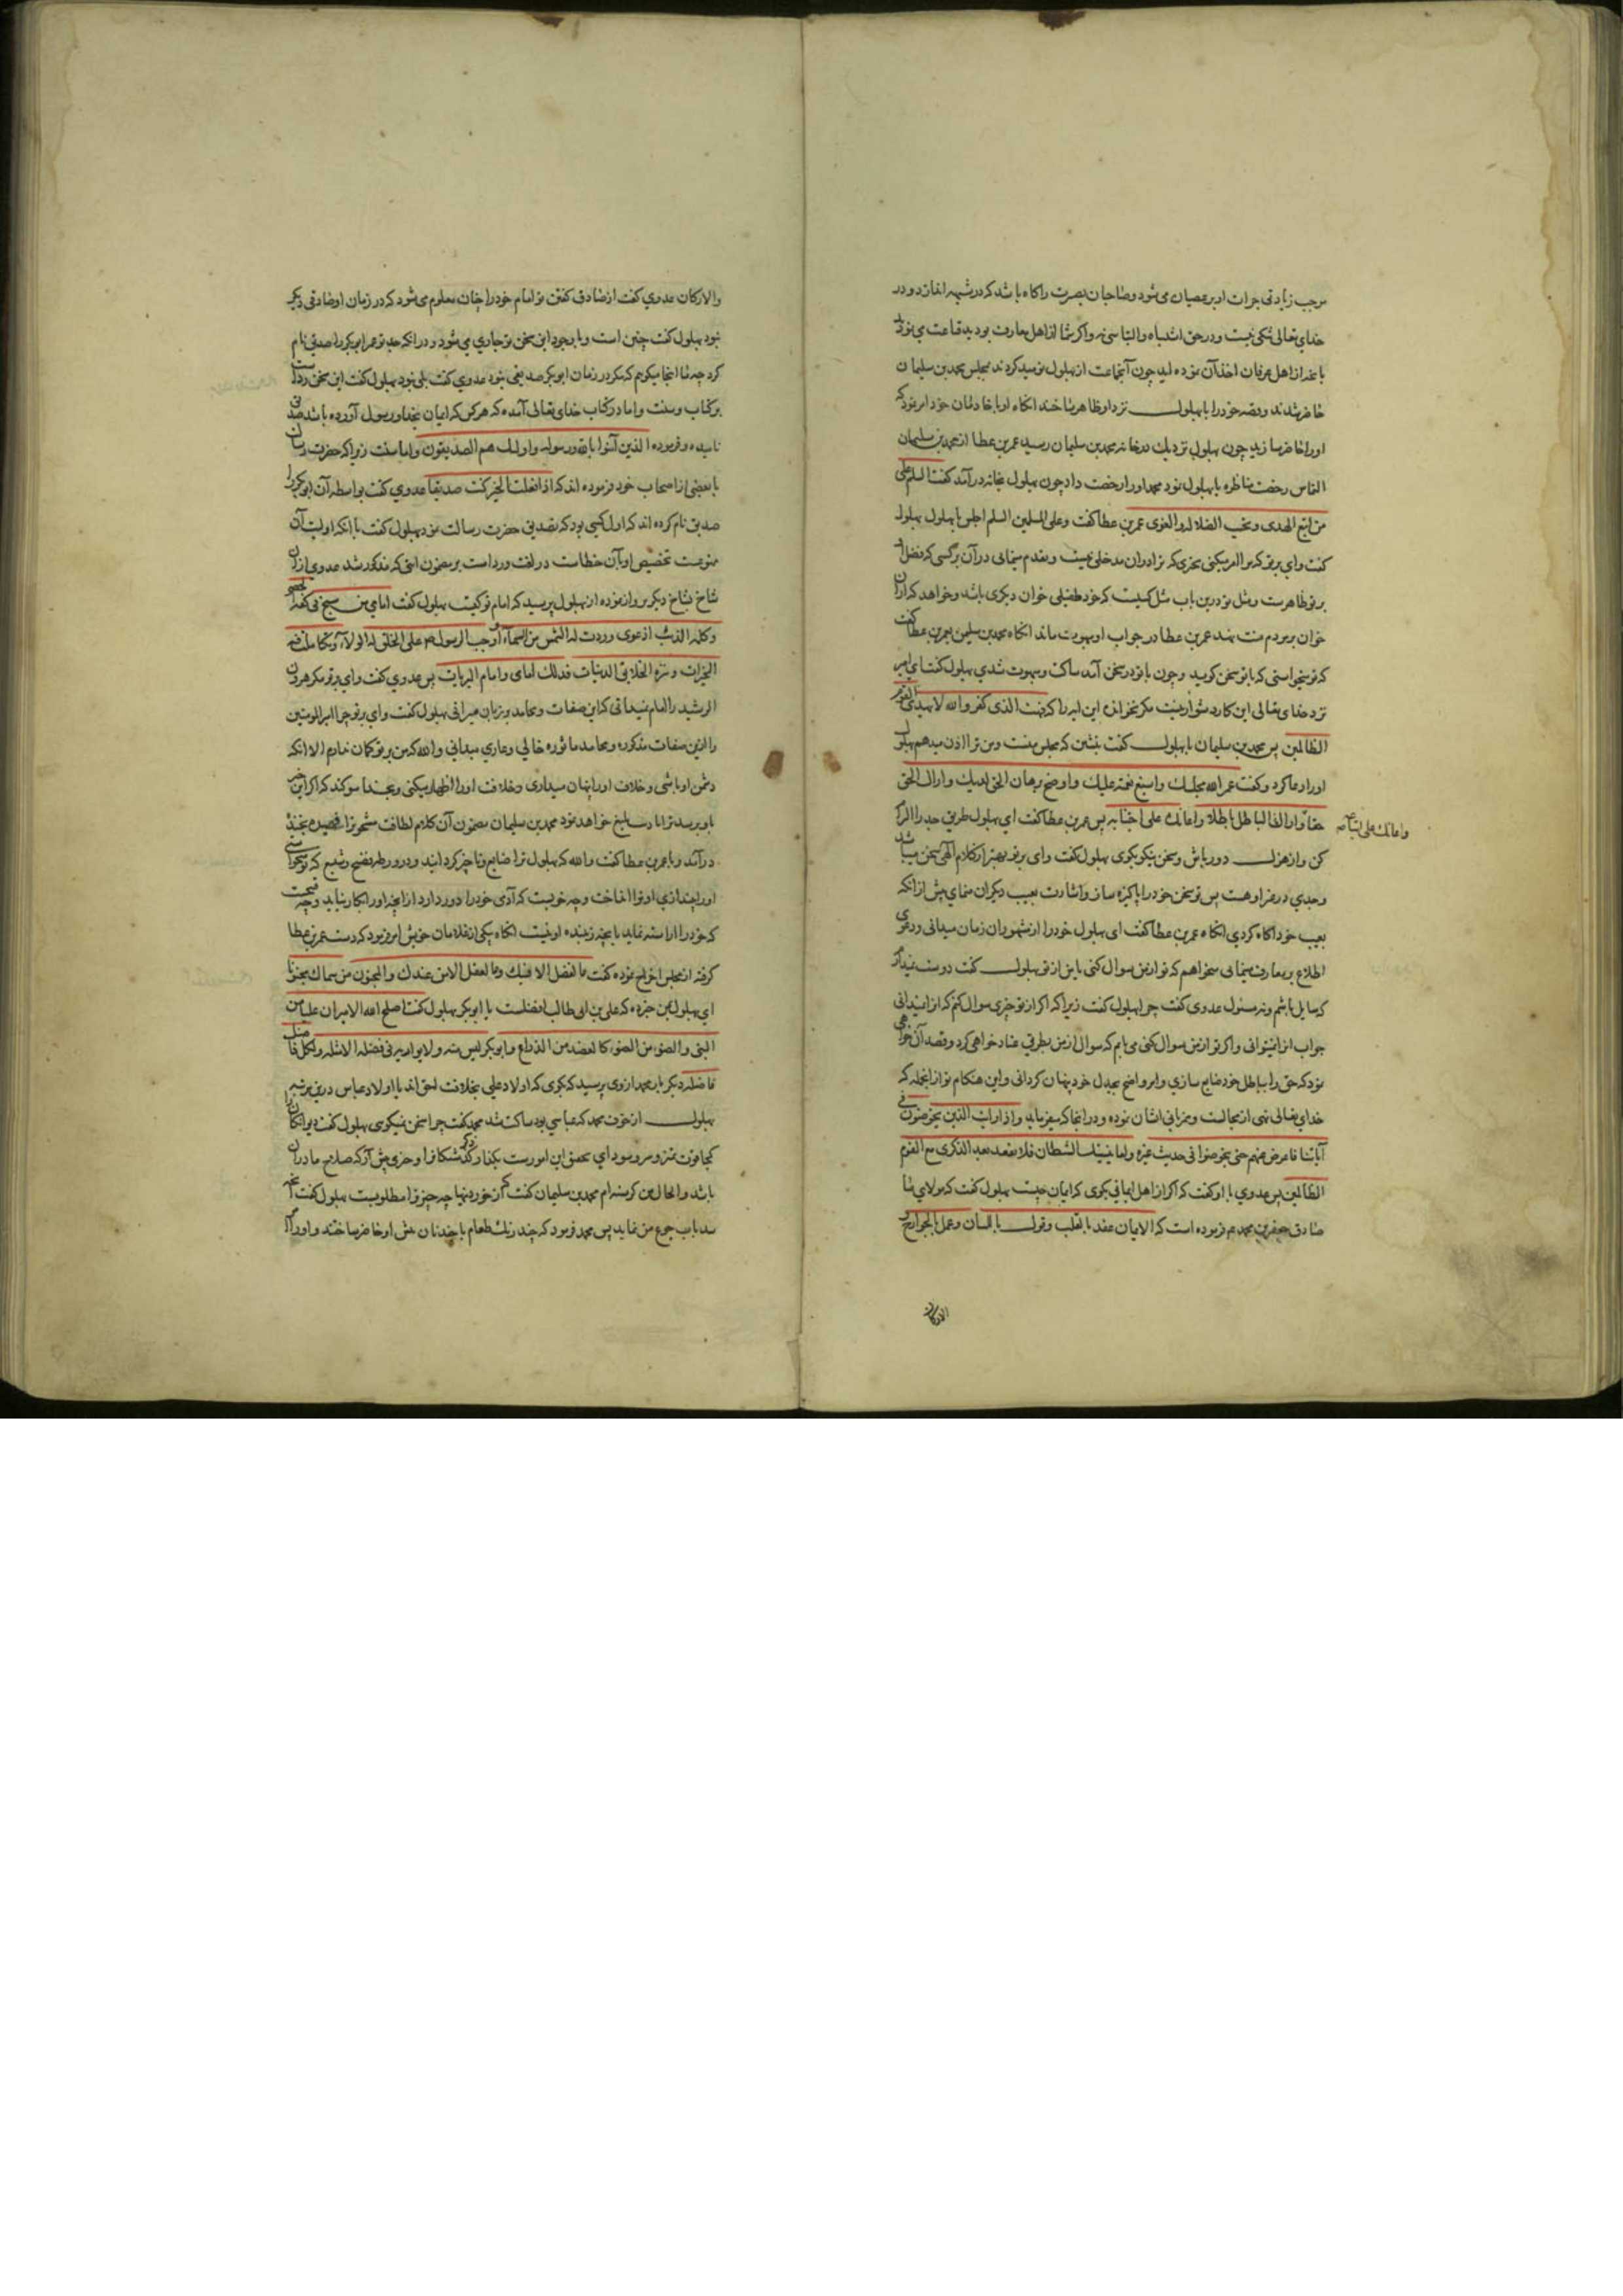 موجب زیادتی جرات او بر عصیان می شود و صاحبان بصیرت را کاه باشد که در شبهه اندازد و در
خدای تعالی شکی نیست و در حق اشتباه والتباسی نه واکر شما از اهل معارف بودید قناعت می نمودید
بانچه از اهل عرفان اخذ آن نموده اید چون آنجماعت از بهلول نومید کردند بمجلس محمد بن سلیمان
حاضر شدند وقصه خود را با بهلول نزد او ظاهر ساختند انکاه او با خادمان خود امر نمود که
او را حاضر سازید چون بهلول نزدیک بدر خانه محمد بن سلیمان رسید عمر بن عطا از محمد بن سلیمان
التماس رخصت مناظره با بهلول نمود محمد او را رخصت داد چون بهلول بخانه در آمد کفت السلم علی
من اتبع الهدی وتجنب الضلالة والغوی عمر بن عطا کفت وعلی المسلمین السلم اجلس یا بهلول بهلول
کفت وای بر تو که مرا امر میکنی بچیزی که ترا در آن مدخلی نیست وتقدم مینمایی در آن بر کسی که فضل او
بر تو ظاهرست ومثل تو درین باب مثل کسیست که خود طفیلی خوان دیکری باشد وخواهد که از آن
خوان بر مردم منت نهد عمر بن عطا در جواب او مبهوت ماند انکاه محمد بن سلیمن بعمر بن عطا کفت
که تو میخواستی که با تو سخن کوید وچون با تو در سخن آمد ساکت ومبهوت شدی بهلول کفت ای امیر
نزد خدای تعالی این کار دشوار نیست مکر نخوانده این ایه را که فبهت الذی کفر والله لا یهدی القوم
الظالمین پس محمد بن سلیمان با بهلول کفت بنشین که مجلس منست ومن ترا اذن میدهم بهلول
او را دعا کرد وکفت عمر الله مجلسک واسبغ نعمه علیک واوضح برهان الحق لدیک واراک الحق
حقا واراک الباطل باطلا واعانک علی اجتنابه پس عمر بن عطا کفت ای بهلول طریق جد را الزام
واعانک علی اتباعه
کن واز هزل دور باش وسخن نیکو بکوی بهلول کفت وای بر تو بهتر از کلام الهی سخن میباشد
وجدی در غیر او هست پس تو سخن خود را پاکیزه ساز واشارت بعیب دیکران منمای پیش از انکه
بعیب خود آکاه کردی انکاه عمر بن عطا کفت ای بهلول خود را از مشهوران زمان میدانی ودعوی
اطلاع بر معارف مینمایی میخواهم که تو از من سوال کنی یا من از تو بهلول کفت دوست نمیدارم
که سایل باشم ونه مسئول عدوی کفت چرا بهلول کفت زیرا که اکر از تو چیزی سوال کنم که آنرا نمیدانی
جواب آن نمیتوانی واکر تو از من سوال کنی می یابم که سوال از من بطریق عناد خواهی کرد وقصد آن خواهی
نمود که حق را بباطل خود ضایع سازی وامر واضح بجدل خود پنهان کردانی واین هنکام تو از انجمله که
خدای تعالی نهی از مجالست وهمزبانی ایشان نموده ودر انجا که میفرماید واذا رایت الذین یخوضون فی
آیاتنا فاعرض عنهم حتی یخوضوا فی حدیث غیره واما ینسینک الشیطان فلا تقعد بعد الذکری مع القوم
الظالمین پس عدوی با او کفت که اکر از اهل ایمانی بکوی که ایمان چیست بهلول کفت که مولای ما
صادق جعفر بن محمد ع فرموده است که الایمان عقد بالقلب وقول باللسان وعمل بالجوارح و
الارکان
والارکان عدوی کفت از صادق کفتن تو امام خود را چنان معلوم می شود که در زمان او صادقی دیکر
نبود بهلول کفت چنین است وباوجود این سخن بر تو جاری می شود در انکه جد تو عمر ابو بکر را صدیق نام
کرد چه ما انجا میکوییم که مکر در زمان ابو بکر صدیقی نبود عدوی کفت بلی نبود بهلول کفت این سخن ردست
بر کتاب وسنت واما در کتاب خدای تعالی آمده که هر کس که ایمان بخدا ورسول آورده باشد صدیق
نامیده وفرموده الذین آمنوا بالله ورسوله واولئک هم الصدیقون واما سنت زیرا که حضرت رسالت
با بعضی از اصحاب خود فرموده اند که اذا فعلت الخیر کنت صدیقا عدوی کفت بواسطه آن ابو بکر را
صدیق نام کرده اند که اول کسی بود که تصدیق حضرت رسالت نمود بهلول کفت با انکه اولیت آن
ممنوعست تخصیص او بآن خطاست در لغت وردست بر مضمون ایتی که مذکور شد عدوی از آن
شاخ بشاخ دیکر پرواز نموده از بهلول پرسید که امام تو کیست بهلول کفت امامی من سبح فی کفه الحصی
وکلمه الذئب اذ عوی وردت له الشمس من السماء واوجب الرسول ص علی الخلق له الولاء وتکاملت فیه
الخیرات وتنزه الخلایق الدنیات فذلک امامی وامام البریات پس عدوی کفت وای بر تو مکر هرون
الرشید را امام نمیدانی که این صفات ومحامد بر زبان میرانی بهلول کفت وای بر تو چرا امیر المومنین
را ازین صفات مذکوره ومحامد ماثوره خالی وعاری میدانی والله که من بر تو کمان ندارم الا انکه
دشمن او باشی وخلاف او را پنهان میداری وخلافت او را اظهار میکنی وبخدا سوکند که اکر این خبر
باو برسد ترا تادیب بلیغ خواهد نمود محمد بن سلیمان مضمون آن کلام لطافت مشحون را فهمیده بخنده
در آمد وبا عمر بن عطا کفت والله که بهلول ترا ضایع وناچیز کردانید ودر ورطه فضیح وشنیع که تو میخواستی
او را بیندازی او ترا انداخت وچه خوبست که آدمی خود را دور دارد از انچه او را بکار نیاید وچه قبیحست
که خود را اراسته نماید بانچه زیبنده او نیست انکاه یکی از غلامان خویش امر فرمود که دست عمر بن عطا
کرفته از مجلس اخراج نموده کفت ما الفضل الا فیک وما العقل الا من عندک والمجنون من سماک مجنونا
ای بهلول بمن خبر ده که علی بن ابی طالب افضلست یا ابو بکر بهلول کفت اصلح الله الامیر ان علیا من
النبی والصنو من الصنو کالعضد من الذراع وابو بکر لیس منه ولا یوازیه فی فضله الا مثله ولکل فاضل
فاضله دیکر بار محمد از وی پرسید که بکوی که اولاد علی بخلافت احق اند یا اولاد عباس درین مرتبه
بهلول از خوف محمد که عباسی بود ساکت شد محمد کفت چرا سخن نمیکوی بهلول کفت دیوانکان را
کجا قوت تمیز ... ای تحقیق این امورست بکذار ذکر کذشتکان را وچیزی پیش آر که صلاح ما در آن
باشد والحال من کرسنه ام محمد بن سلیمان کفت که از خوردنیها چه چیز ترا مطلوبست بهلول کفت آنچه
سد باب جوع من نماید پس محمد فرمود که چند رنک طعام با چند نان پیش او حاضر ساختند واو را